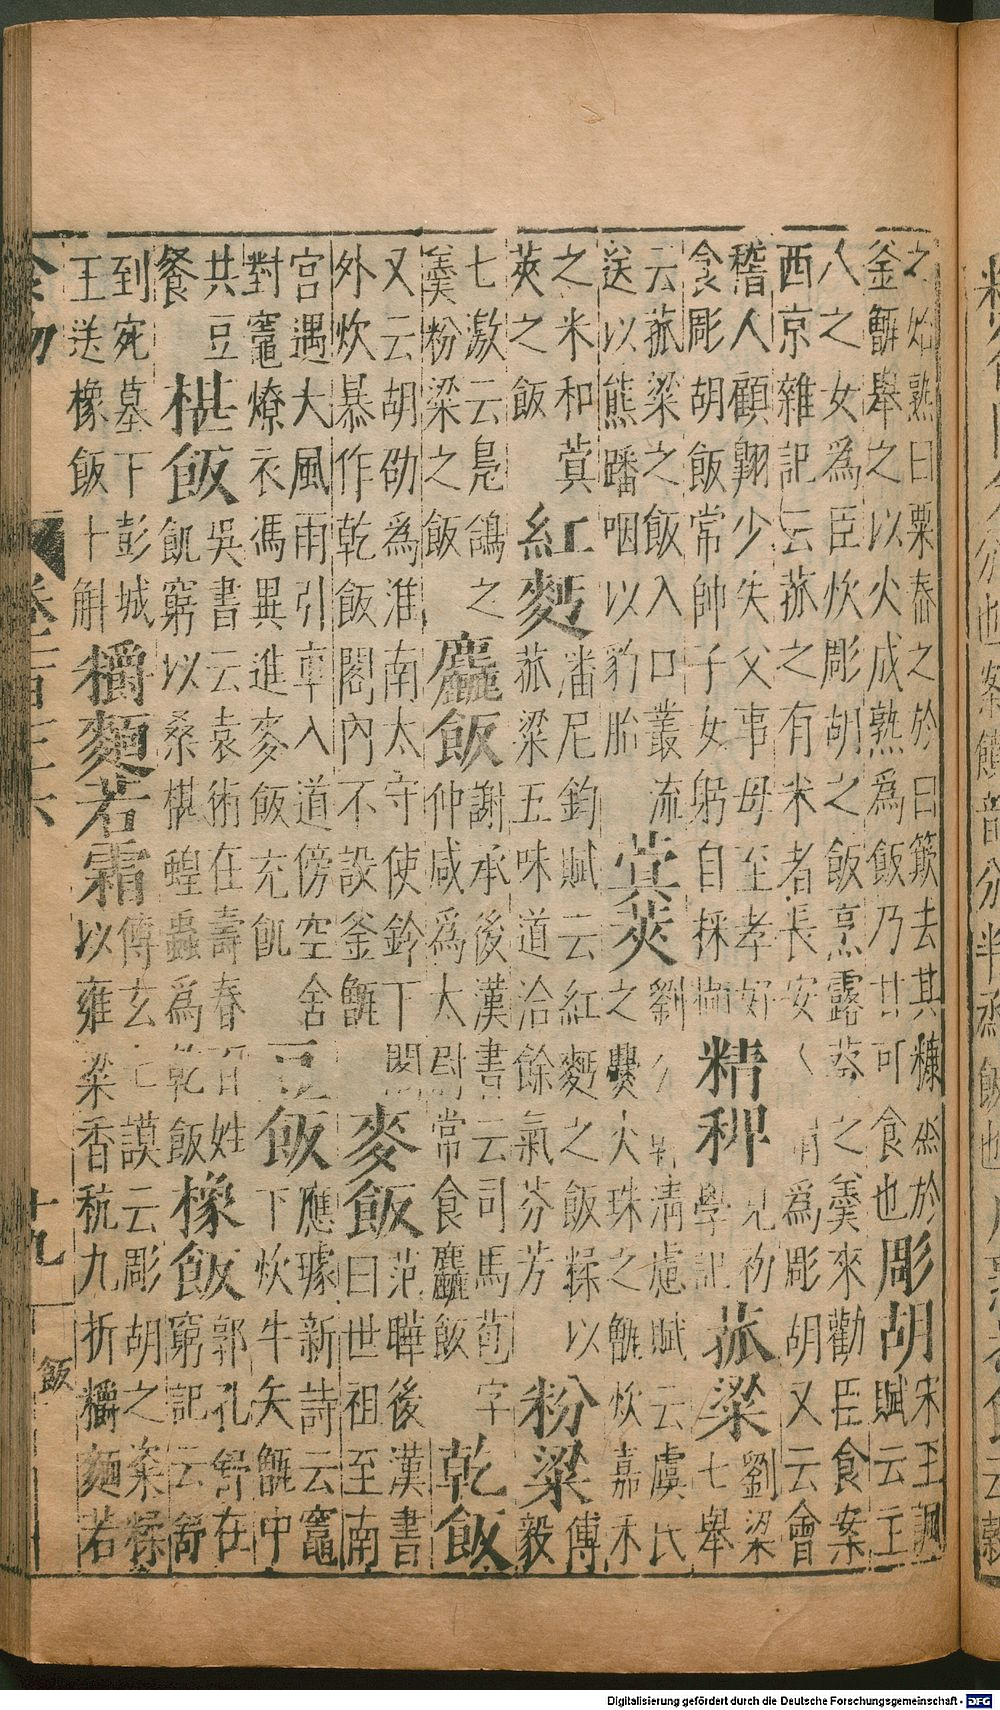 之始熟曰粟黍之於曰簸去其糠烝於
釜甑舉之以火成熟為飯乃甘可食也
彫胡
宋玉諷
賦云主
人之女為臣炊彫胡之飯烹露葵之羹來勸臣食案
西京雜記云菰之有米者長安人謂為彫胡又云會
稽人顧翱少失父事母至孝好
食彫胡飯常帥子女躬自採擷
精稗
見礿
學記
菰梁
劉梁
七舉
云菰梁之飯入口叢流
送以熊蹯咽以豹胎
蓂莢
劉公幹清慮賦云虞氏
之爨火珠之甑炊嘉禾
之米和蓂
莢之飯
紅麪
潘尼鈞賦云紅麪之飯糅以
菰粱五味道洽餘氣芬芳
粉粱
傅
毅
七激云鳧鴿之
羹粉梁之飯
麤飯
謝承後漢書云司馬苞字
仲咸為太尉常食麤飯
乾飯
又云胡劭為淮南太守使鈴下閣
外炊暴作乾飯閣內不設釜甑
麥飯
范曄後漢書
曰世祖至南
宮遇大風雨引車入道傍空舍
對竈燎衣馮異進麥飯充飢
豆飯
應璩新詩云竈
下炊牛矢甑中
共豆
餐
椹飯
吳書云袁術在壽春百姓
飢窮以桑椹蝗蟲為乾飯
橡飯
郭孔舒在
窮記云舒
到宛墓下彭城
王送橡飯十斛
欘麵若霜
傅玄七謨云彫胡之粢糅
以雍梁香秔九折欘麵若
食物
十九
飯
Digitalisierung gefördert durch die Deutsche Forschungsgemeinschaft - DFG